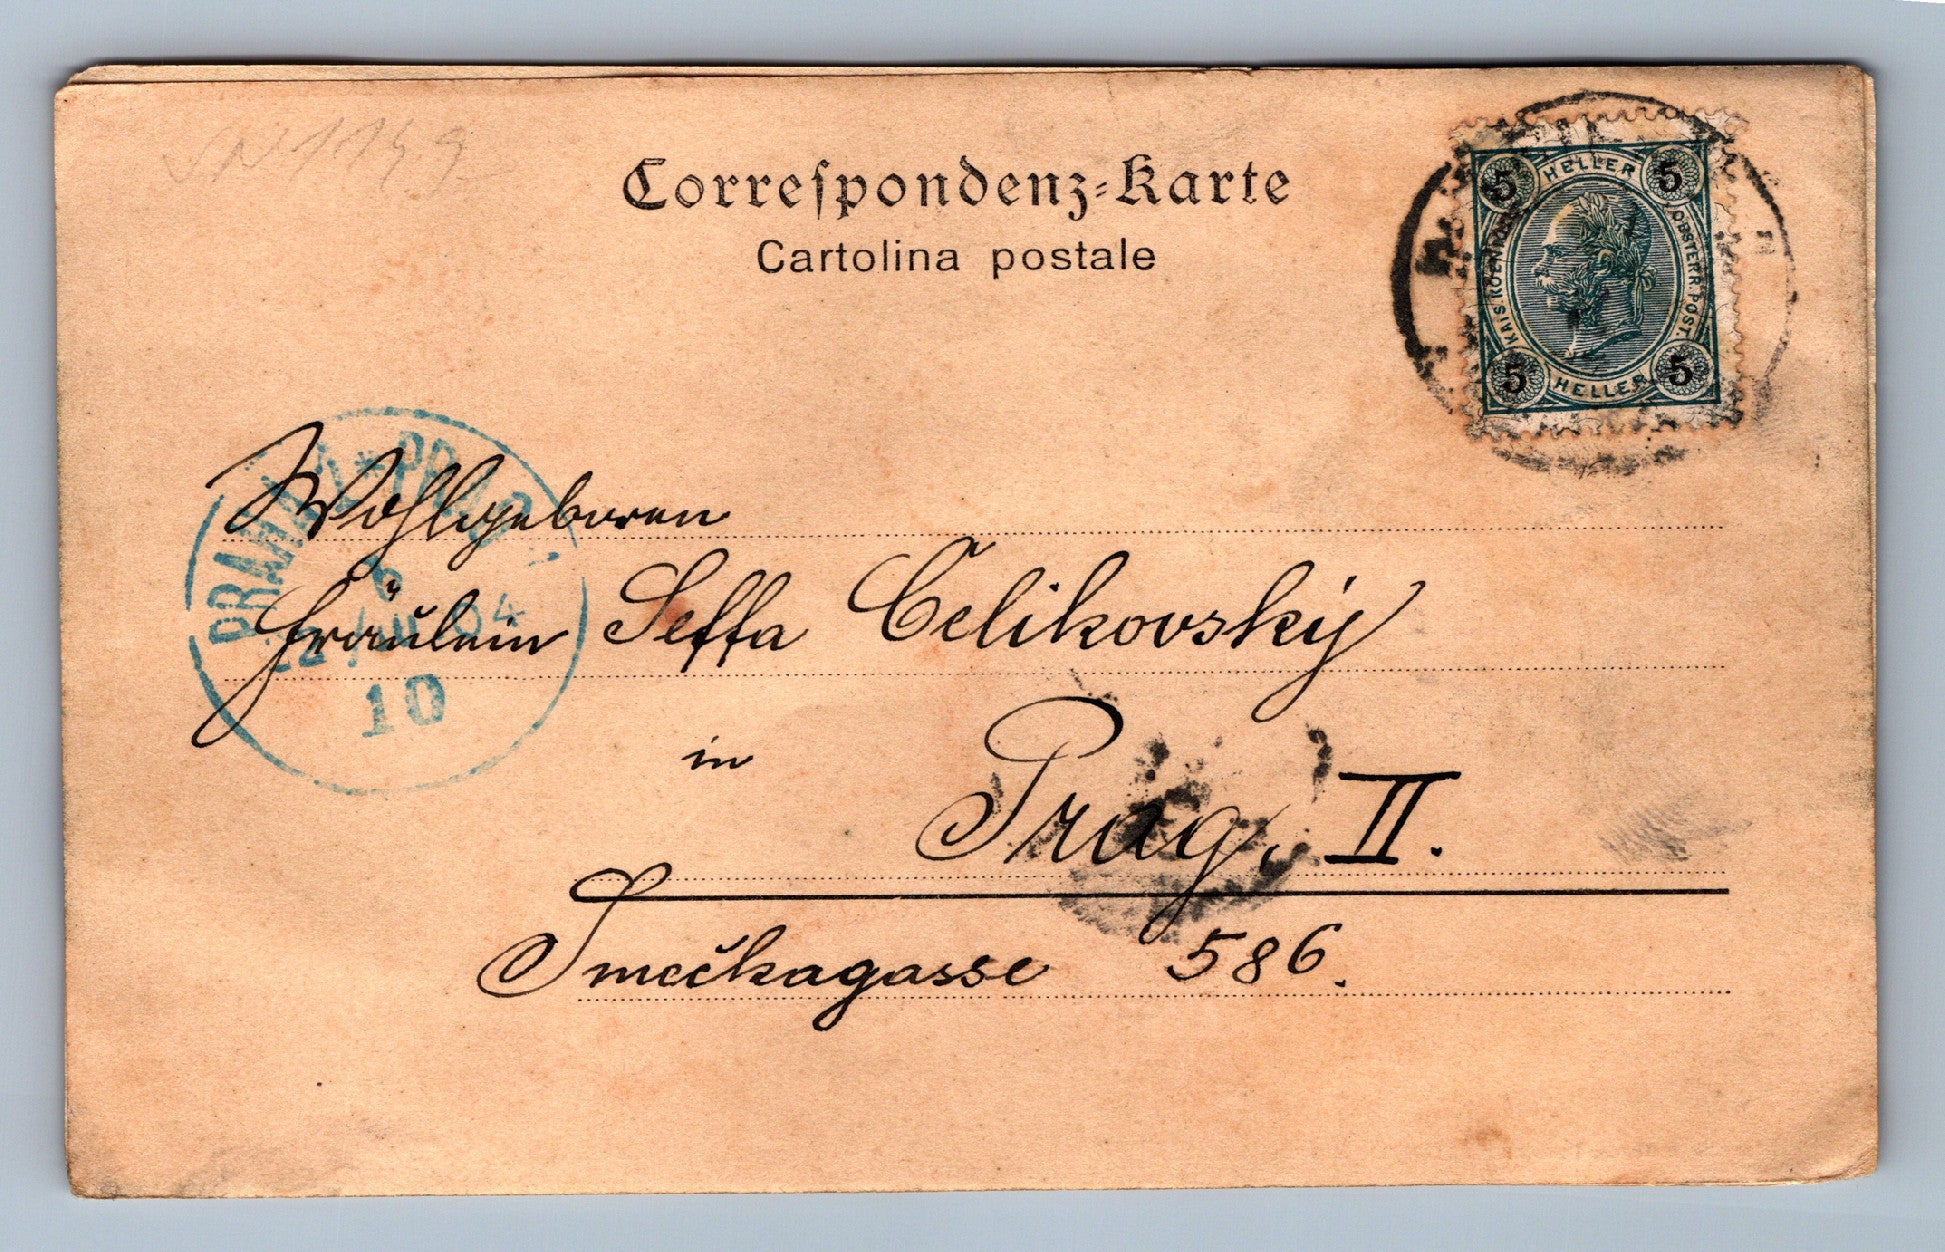 Correspondenz-Karte
Cartolina postale
5 HELLER 5
KAIS. KOENIGL. OESTERR. POST.
5 HELLER 5
PRAHA 1 * PRAG 1
6
10
Wohlgeboren
Fräulein Seffa Čelikovský
in
Prag, II.
Smečkagasse 586.